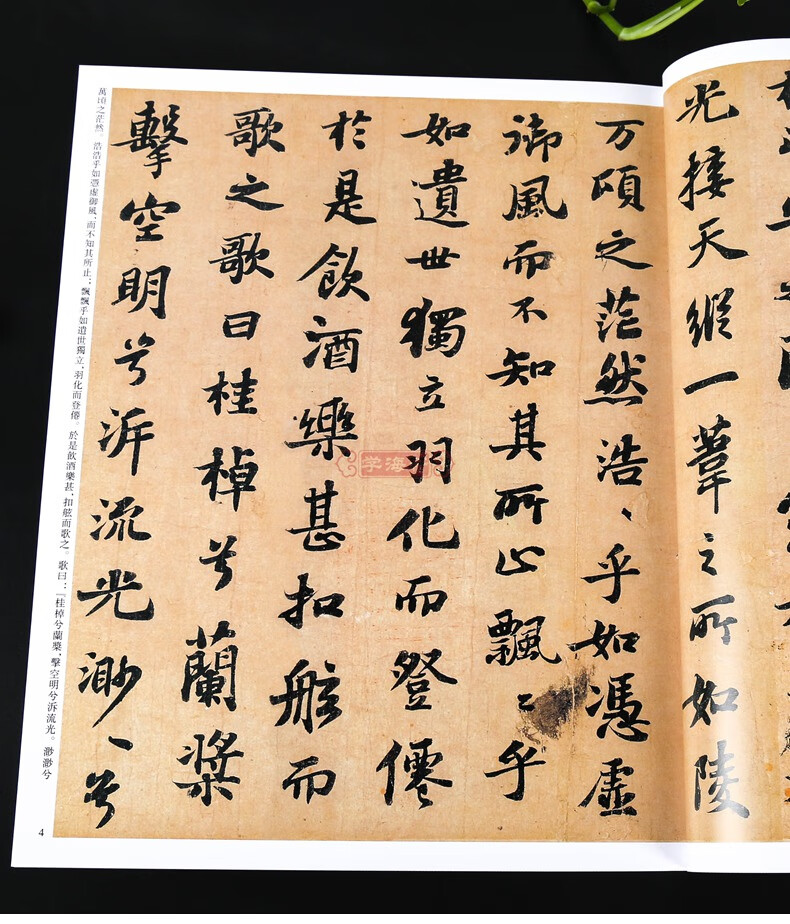 光接天縱一葦之所如陵
万頃之茫然浩〻乎如憑虛
御風而不知其所止飄〻乎
如遺世獨立羽化而登僊
於是飲酒樂甚扣舷而
歌之歌曰桂棹兮蘭槳
擊空明兮泝流光渺〻兮
萬頃之茫然。浩浩乎如憑虛御風，而不知其所止；飄飄乎如遺世獨立，羽化而登僊。於是飲酒樂甚，扣舷而歌之。歌曰：『桂棹兮蘭槳，擊空明兮泝流光。渺渺兮
4
学海